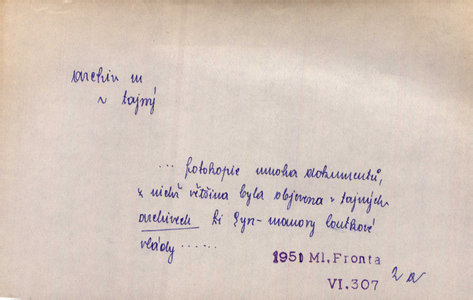 archiv m
v tajný
... fotokopie mnoha dokumentů,
z nichž většina byla objevena v tajných
archivech Li Syn-manovy loutkové
vlády ......
1951 Ml. Fronta
VI.307 2a